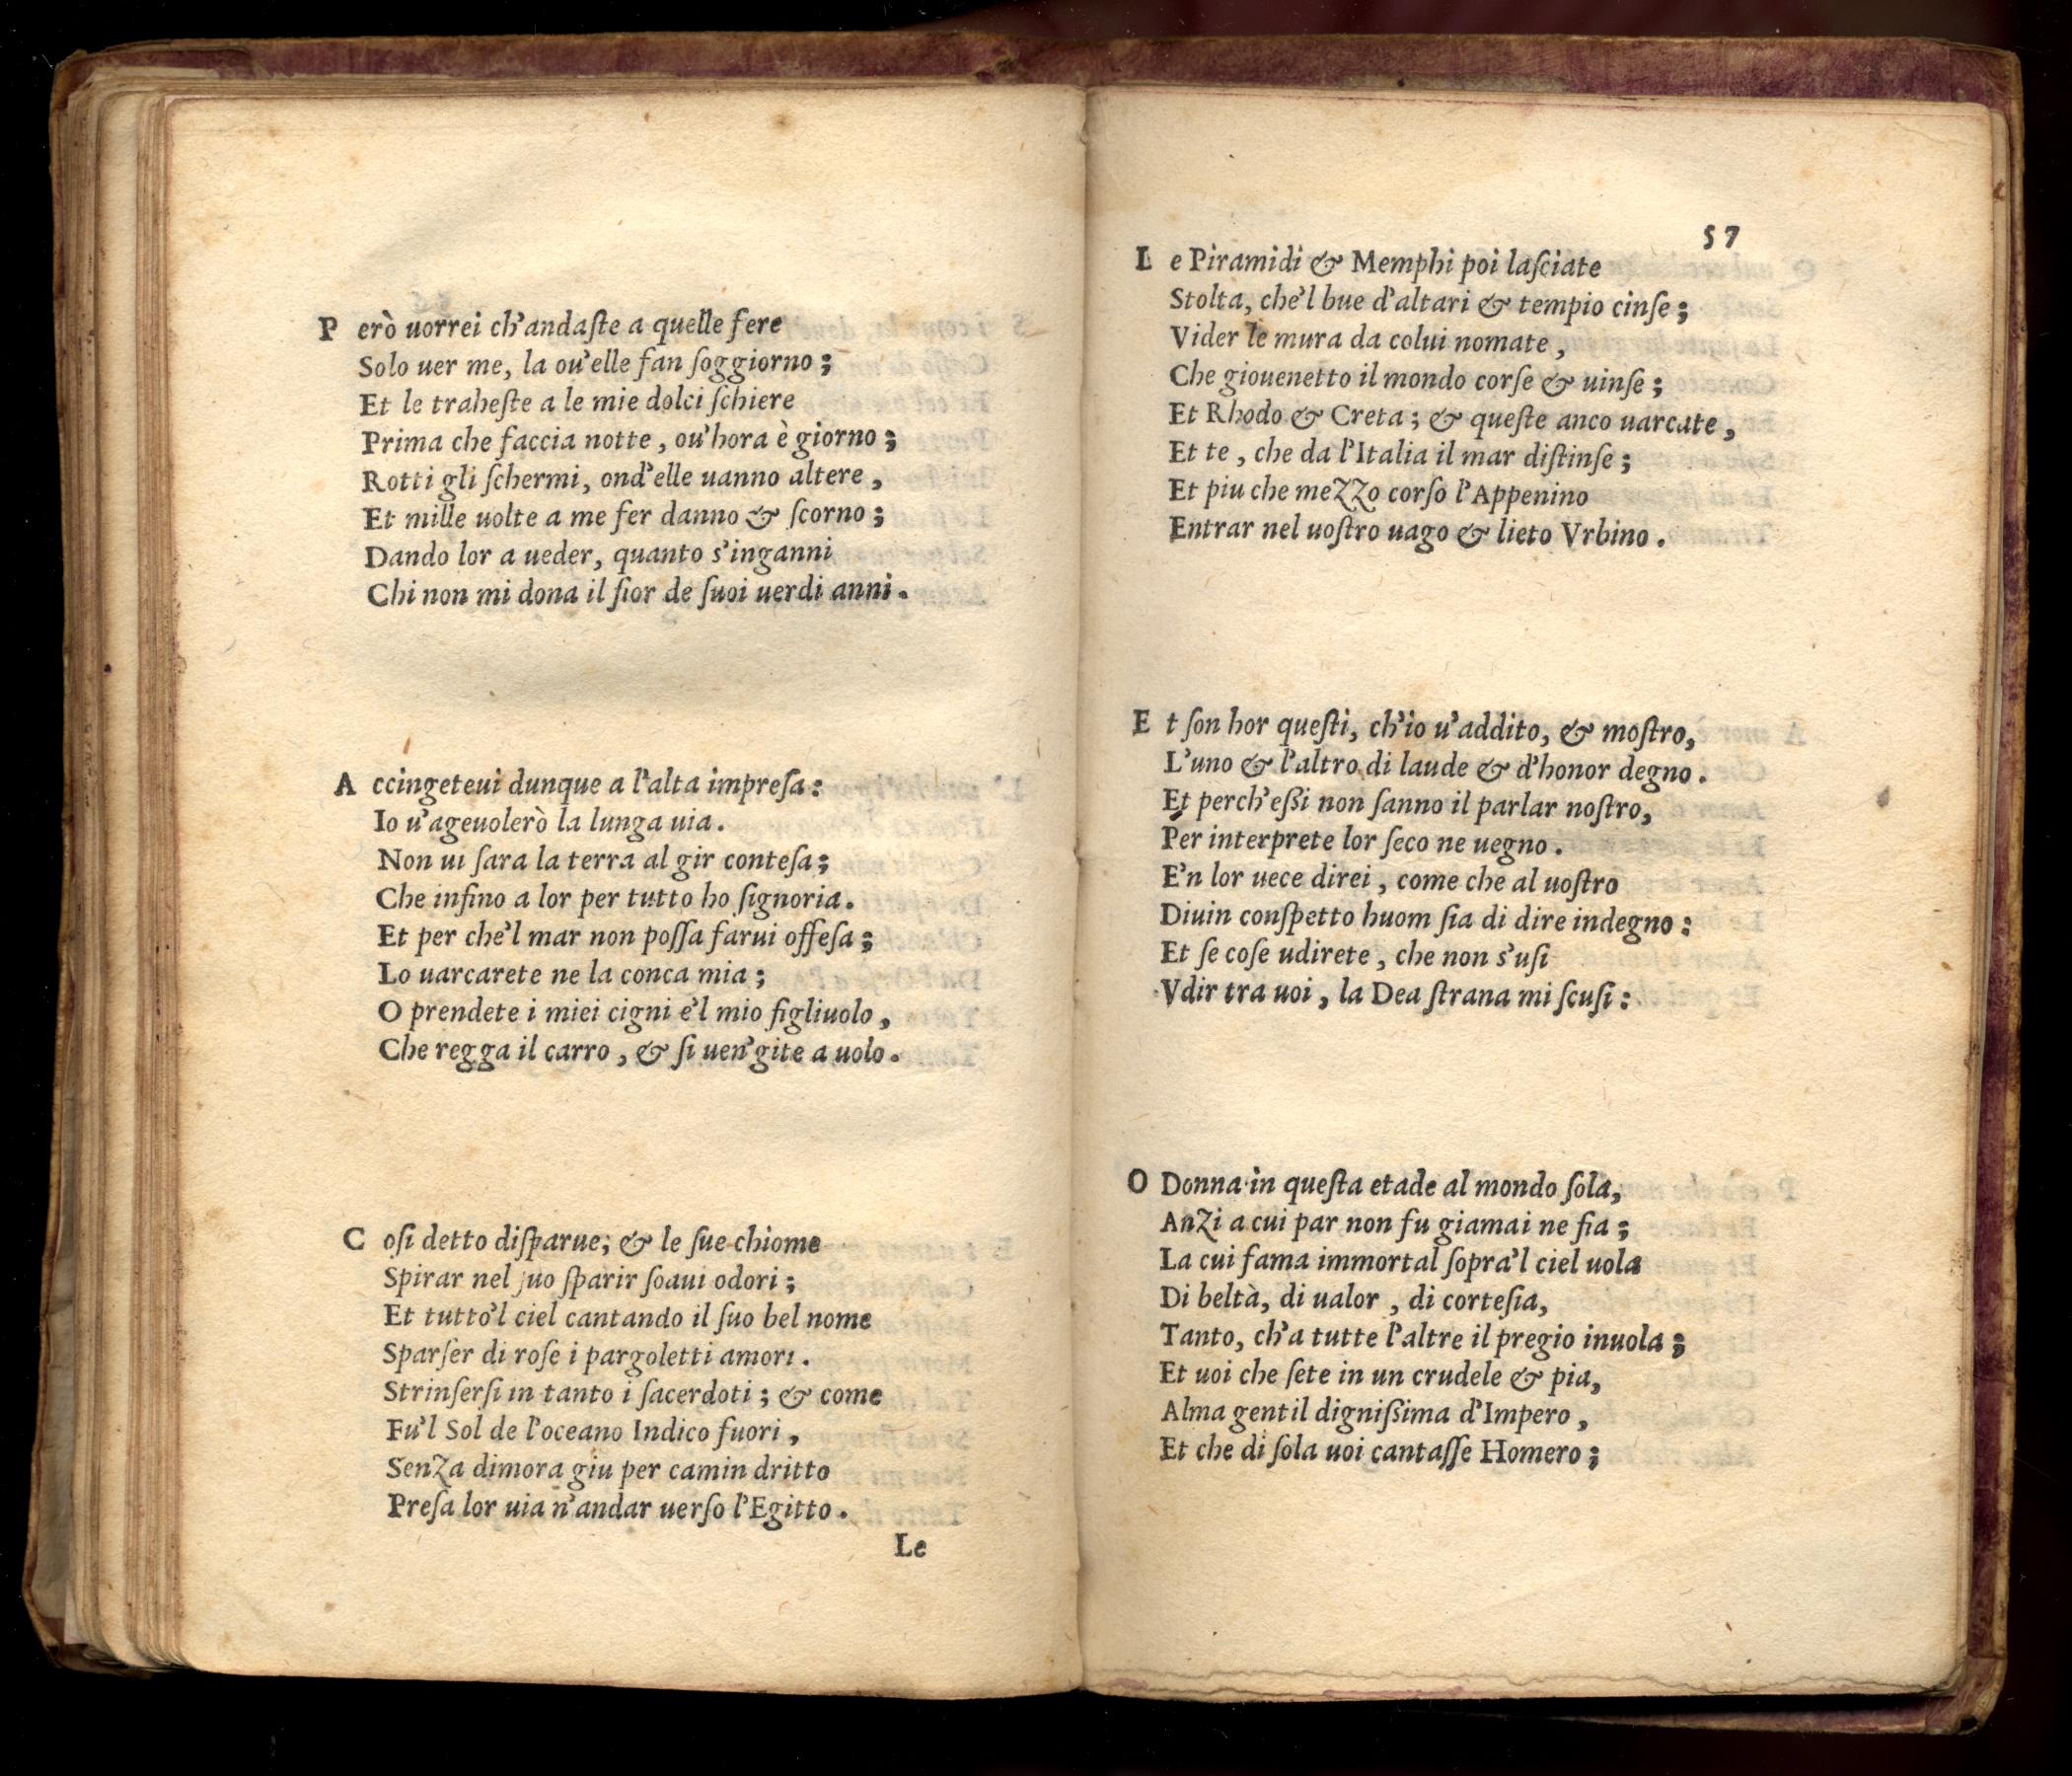 P erò uorrei ch'andaſte a quelle fere
Solo uer me, la ou'elle fan ſoggiorno;
Et le traheſte a le mie dolci ſchiere
Prima che faccia notte, ou'hora è giorno;
Rotti gli ſchermi, ond'elle uanno altere,
Et mille uolte a me fer danno & ſcorno;
Dando lor a ueder, quanto s'inganni
Chi non mi dona il fior de ſuoi uerdi anni.
A ccingeteui dunque a l'alta impreſa:
Io u'ageuolerò la lunga uia.
Non ui ſara la terra al gir conteſa;
Che infino a lor per tutto ho ſignoria.
Et per che'l mar non poſſa farui offeſa;
Lo uarcarete ne la conca mia;
O prendete i miei cigni e'l mio figliuolo,
Che regga il carro, & ſi uen'gite a uolo.
C oſi detto diſparue; & le ſue chiome
Spirar nel ſuo ſparir ſoaui odori;
Et tutto'l ciel cantando il ſuo bel nome
Sparſer di roſe i pargoletti amori.
Strinſerſi in tanto i ſacerdoti; & come
Fu'l Sol de l'oceano Indico fuori,
Senza dimora giu per camin dritto
Preſa lor uia n'andar uerſo l'Egitto.
Le
57
L e Piramidi & Memphi poi laſciate
Stolta, che'l bue d'altari & tempio cinſe;
Vider le mura da colui nomate,
Che giouenetto il mondo corſe & uinſe;
Et Rhodo & Creta; & queſte anco uarcate,
Et te, che da l'Italia il mar diſtinſe;
Et piu che mezzo corſo l'Appenino
Entrar nel uoſtro uago & lieto Vrbino.
E t ſon hor queſti, ch'io u'addito, & moſtro,
L'uno & l'altro di laude & d'honor degno.
Et perch'eßi non ſanno il parlar noſtro,
Per interprete lor ſeco ne uegno.
E'n lor uece direi, come che al uoſtro
Diuin conſpetto huom ſia di dire indegno:
Et ſe coſe udirete, che non s'uſi
Vdir tra uoi, la Dea ſtrana mi ſcuſi:
O Donna in queſta etade al mondo ſola,
Anzi a cui par non fu giamai ne fia;
La cui fama immortal ſopra'l ciel uola
Di beltà, di ualor, di corteſia,
Tanto, ch'a tutte l'altre il pregio inuola;
Et uoi che ſete in un crudele & pia,
Alma gentil dignißima d'Impero,
Et che di ſola uoi cantaſſe Homero;